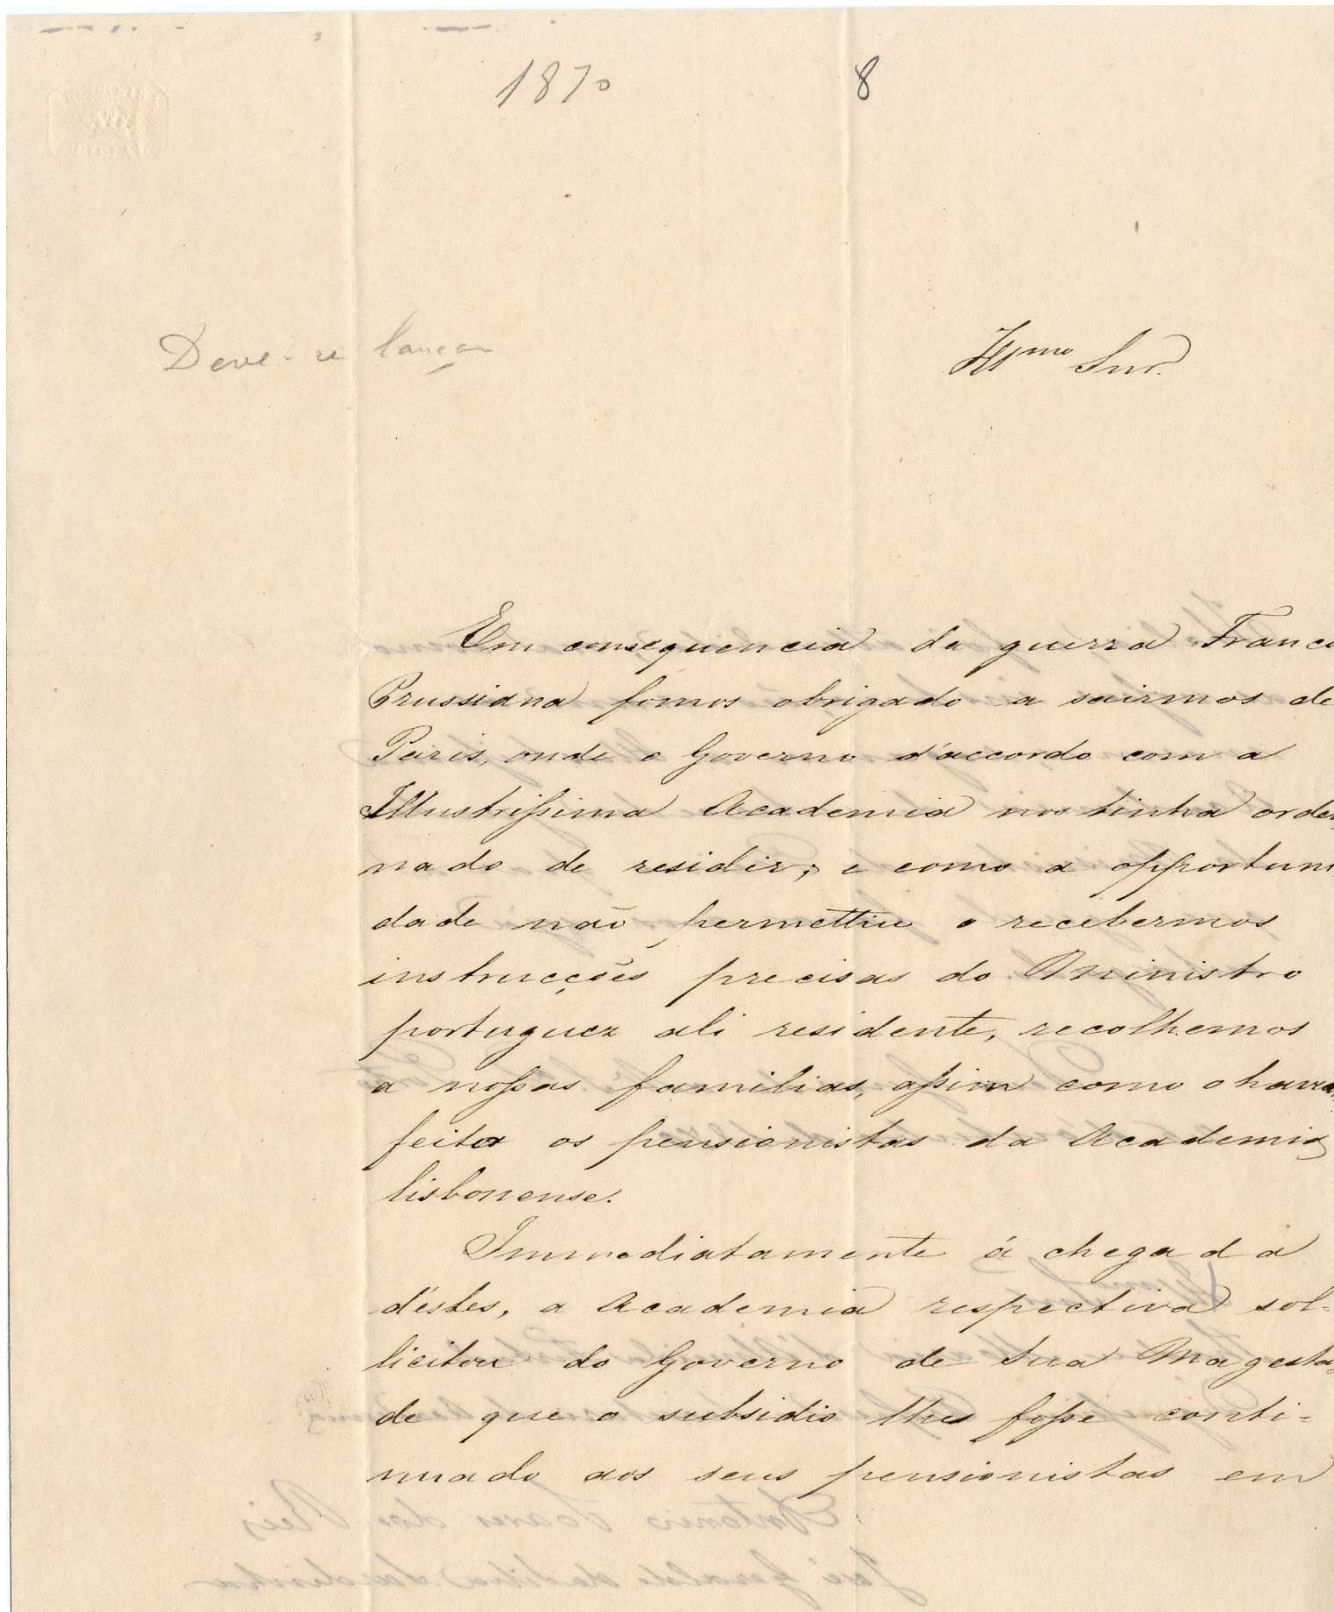 1870 8
Deve-se lançar
Illmo Snr.
Em consequencia da guerra Franco
Prussiana fomos obrigado a sairmos de
Paris, onde o Governo d'accordo com a
Illustrissima Academia nos tinha orde
nado de residir; e como a opportuni
dade não permettiu o recebermos
instrucções precisas do Ministro
portuguez ali residente, recolhemos
a nossas familias, assim como o havia
feito os pensionistas da Academia
lisbonense.
Immediatamente á chegada
d'estes, a Academia respectiva sol=
licitou do Governo de Sua Magesta=
de que o subsidio lhes fosse conti=
nuado aos seus pensionistas em
Antonio Soares dos Reis
José Geraldo da Silva Sardinha